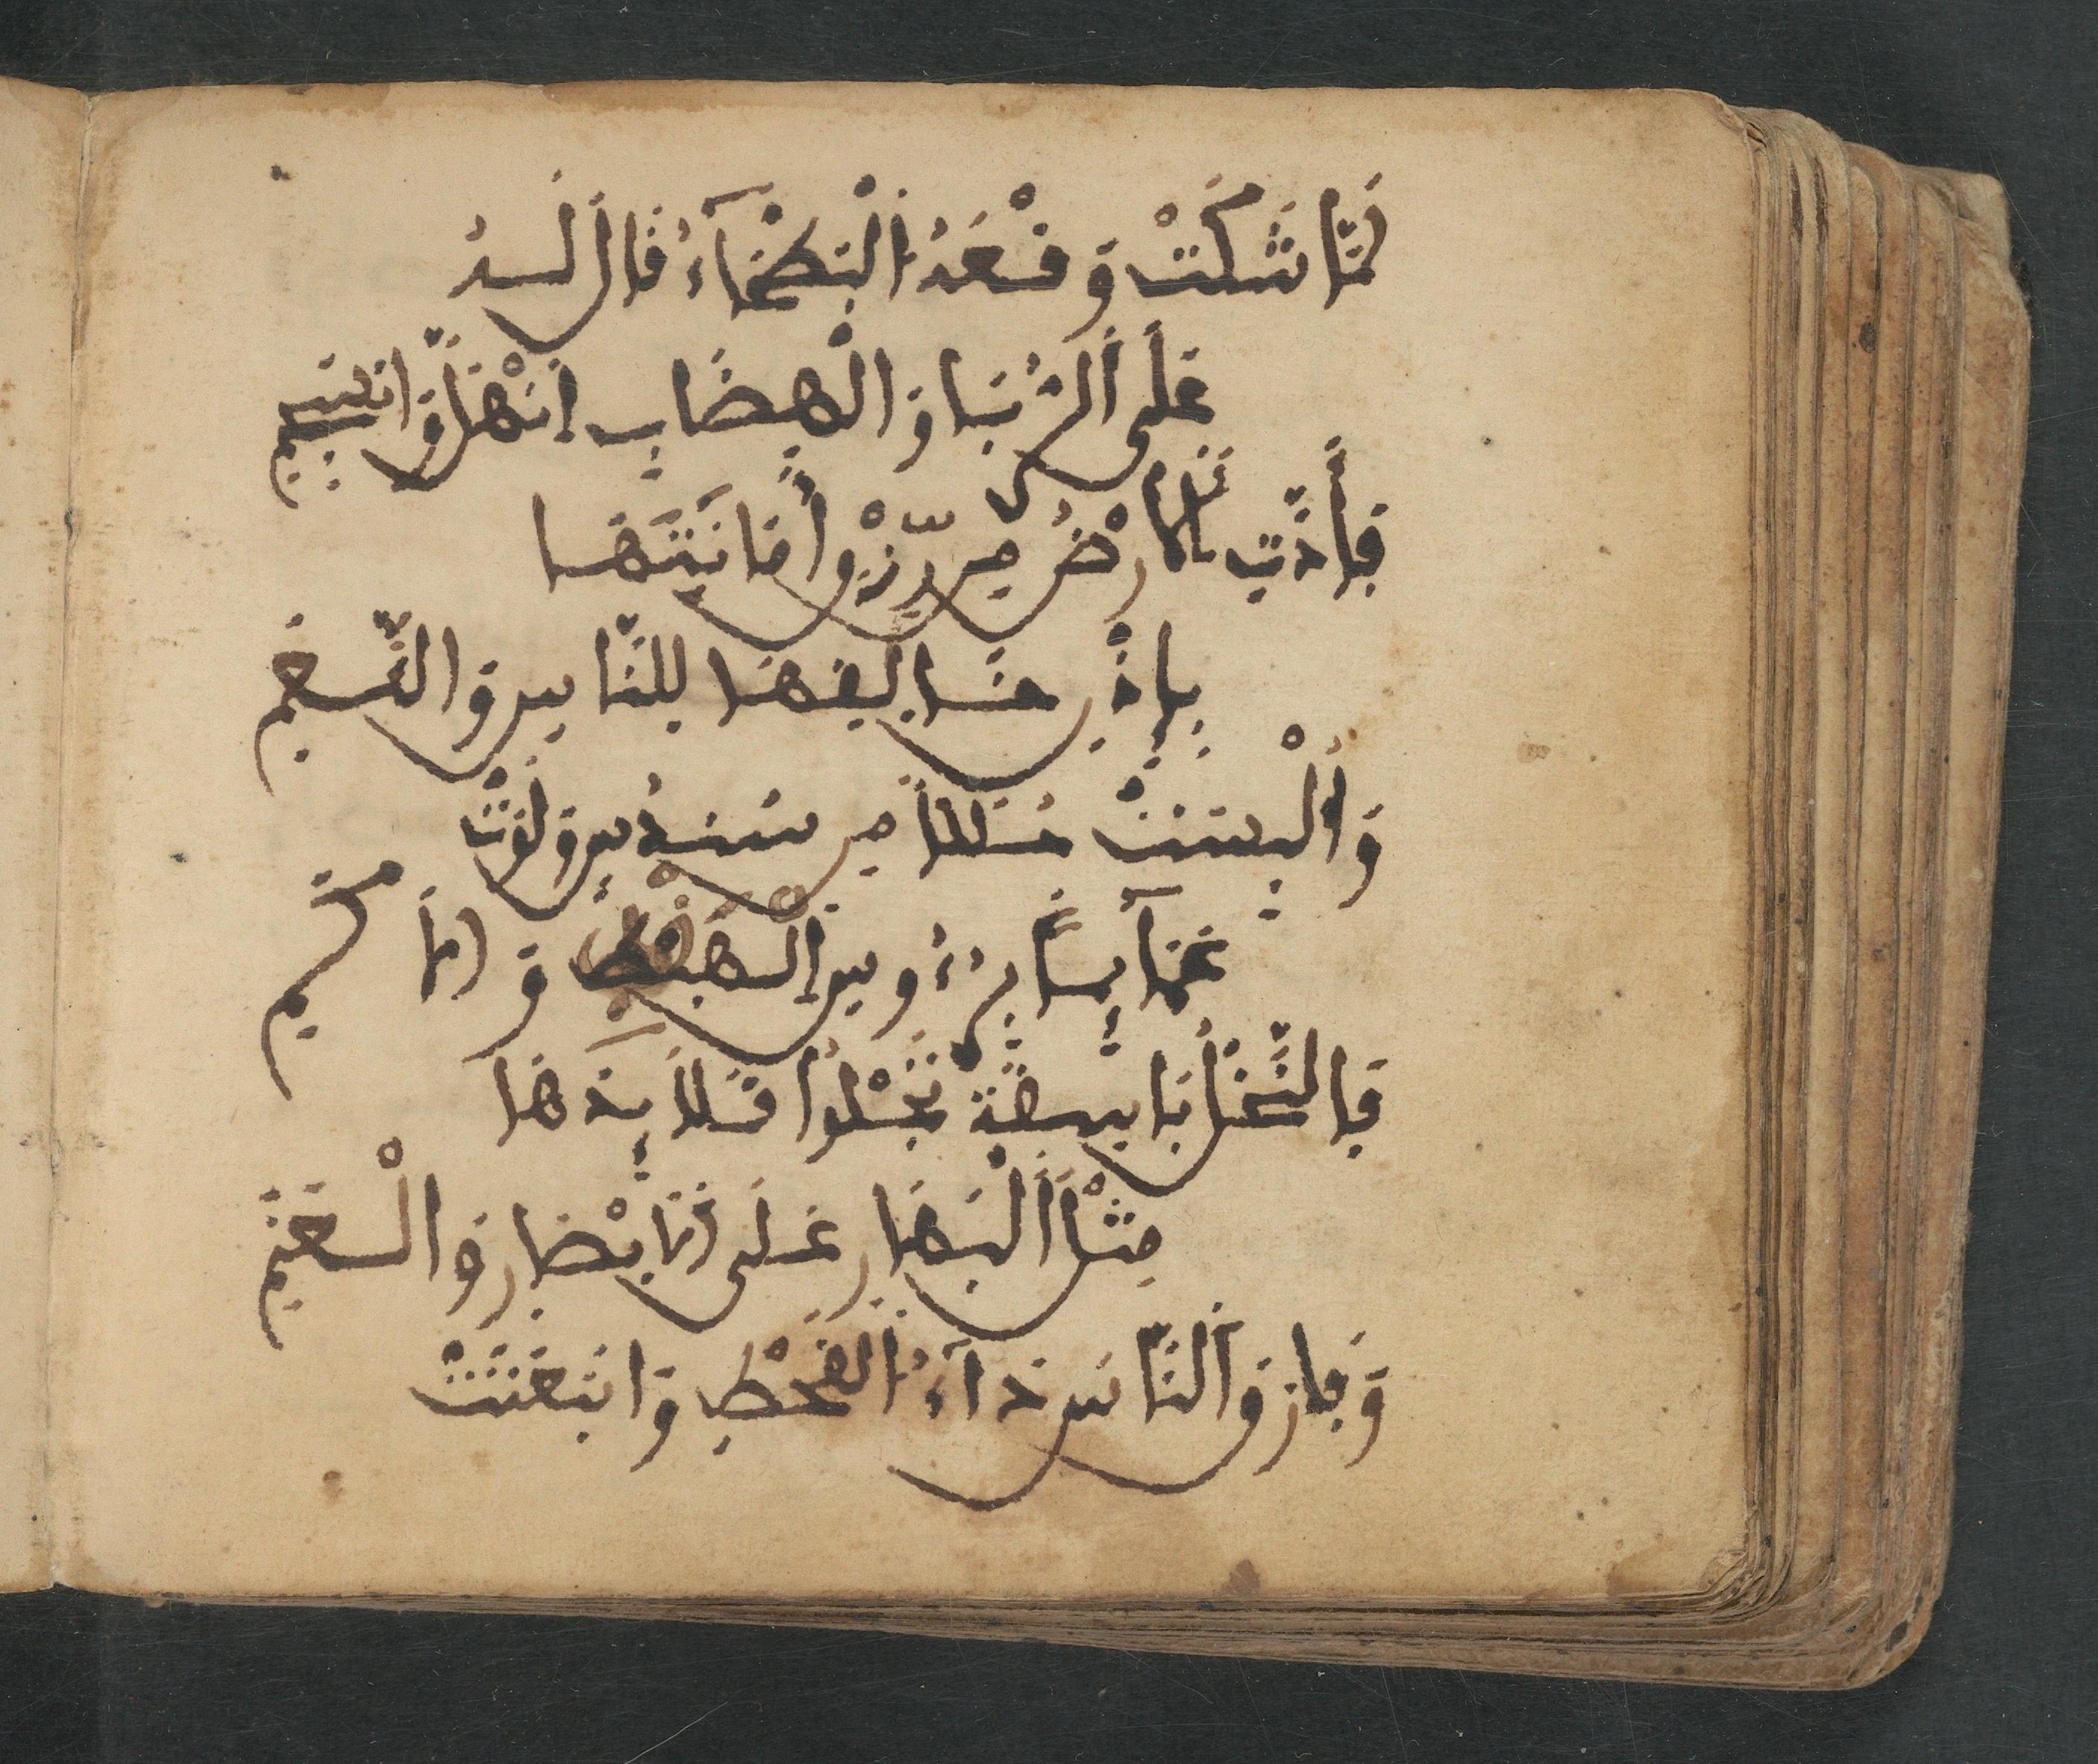 لَمَّا شَكَتْ وَقْعَهُ الْبَطْحَآءُ قَالَ لَهُ
عَلَى الرُّبَا وَالْهِضَابِ انْهَلَّ وَانْسَجِمِ
فَأَدَّتِ الْأَرْضُ مِن رِّزْقٍ أَمَانَتَهَا
بِإِذْنِ خَالِقِهَا لِلنَّاسِ وَالنَّعَمِ
وَأُلْبِسَتْ حُلَلًا مِن سُندُسٍ وَلَوَتْ
عَمَآئِمًا بِرُءُوسِ الْهَضْبِ وَالْأَكَمِ
فَالنَّخْلُ بَاسِقَةٌ تَجْلُوا قَلَائِدَهَا
مِثْلَ الْبَهَارِ عَلَى الْأَبْصَارِ وَالْعَنَمِ
وَفَارَقَ النَّاسَ دَآءُ الْقَحْطِ وَانْبَعَثَتْ